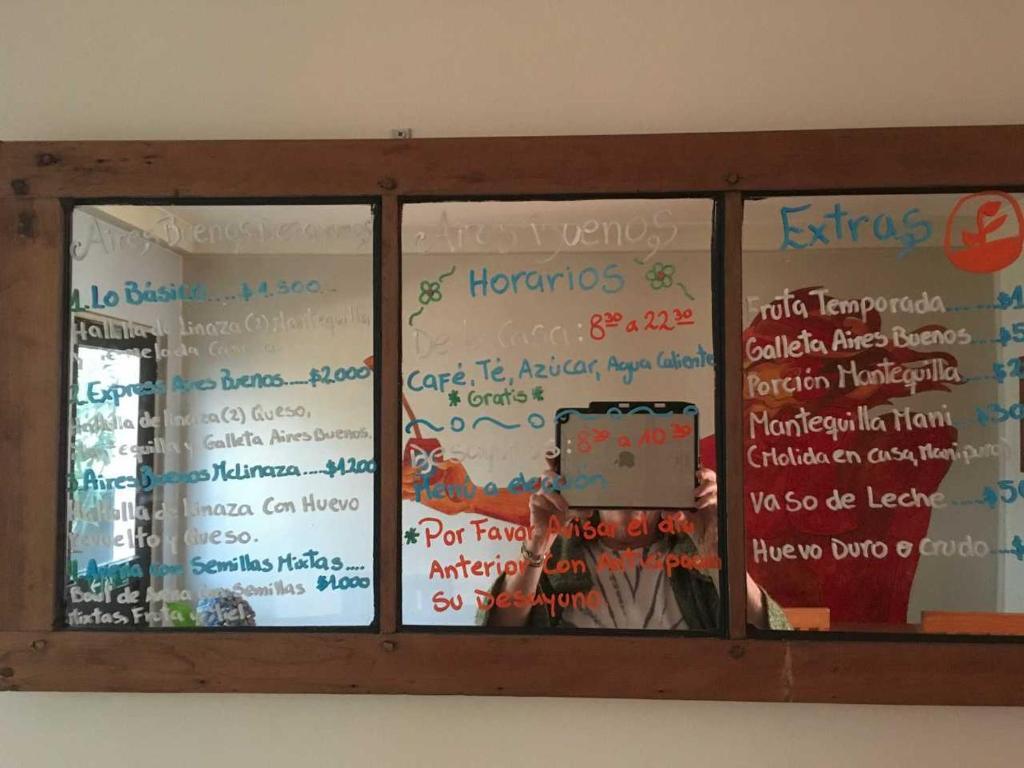 Aires Buenos
1. Lo Básico....$1.500
Hallulla de Linaza (2) Mantequilla
y
2. Express Aires Buenos.....$2.000
Hallulla de linaza (2) Queso,
y Galleta Aires Buenos.
3. Aires Buenos McLinaza....$1.200
Hallulla de Linaza Con Huevo
revuelto y Queso.
con Semillas Mixtas....
$1.000
Semillas
Mixtas, Fruta
Aires Buenos
Horarios
De la Casa: 8³⁰ a 22³⁰
Café, Té, Azúcar, Agua Caliente
*Gratis*
Desayunos: 8³⁰ a 10³⁰
Menú a elección
*Por Favor Avisar el día
Anterior Con Anticipación
Su Desayuno
Extras
Fruta Temporada......
Galleta Aires Buenos....
Porción Mantequilla....
Mantequilla Mani
(Molida en casa, Mani puro)
Vaso de Leche.....
Huevo Duro o crudo....